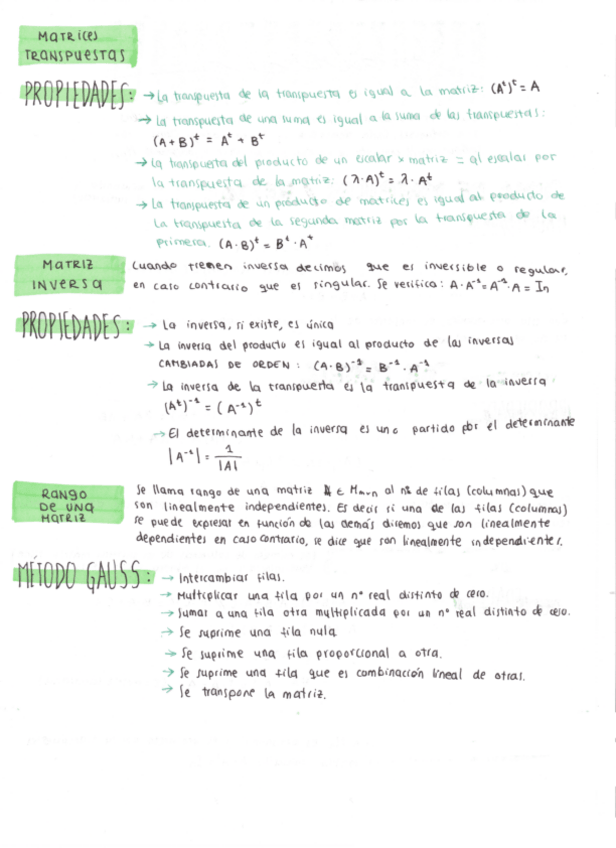 MATRICES
TRANSPUESTAS
PROPIEDADES: → La transpuesta de la transpuesta es igual a la matriz: (Aᵗ)ᵗ = A
→ La transpuesta de una suma es igual a la suma de las transpuestas:
(A + B)ᵗ = Aᵗ + Bᵗ
→ La transpuesta del producto de un escalar x matriz = al escalar por
la transpuesta de la matriz: (λ·A)ᵗ = λ·Aᵗ
→ La transpuesta de un producto de matrices es igual al producto de
la transpuesta de la segunda matriz por la transpuesta de la
primera. (A·B)ᵗ = Bᵗ·Aᵗ
MATRIZ
INVERSA
Cuando tienen inversa decimos que es inversible o regular,
en caso contrario que es singular. Se verifica: A·A⁻¹ = A⁻¹·A = In
PROPIEDADES: → La inversa, si existe, es única
→ La inversa del producto es igual al producto de las inversas
CAMBIADAS DE ORDEN: (A·B)⁻¹ = B⁻¹·A⁻¹
→ La inversa de la transpuesta es la transpuesta de la inversa
(Aᵗ)⁻¹ = (A⁻¹)ᵗ
→ El determinante de la inversa es uno partido por el determinante
|A⁻¹| = 1/|A|
RANGO
DE UNA
MATRIZ
Se llama rango de una matriz A ∈ Mmxn al nº de filas (columnas) que
son linealmente independientes. Es decir si una de las filas (columnas)
se puede expresar en función de las demás diremos que son linealmente
dependientes en caso contrario, se dice que son linealmente independientes.
MÉTODO GAUSS: → Intercambiar filas.
→ Multiplicar una fila por un nº real distinto de cero.
→ Sumar a una fila otra multiplicada por un nº real distinto de cero.
→ Se suprime una fila nula
→ Se suprime una fila proporcional a otra.
→ Se suprime una fila que es combinación lineal de otras.
→ Se transpone la matriz.